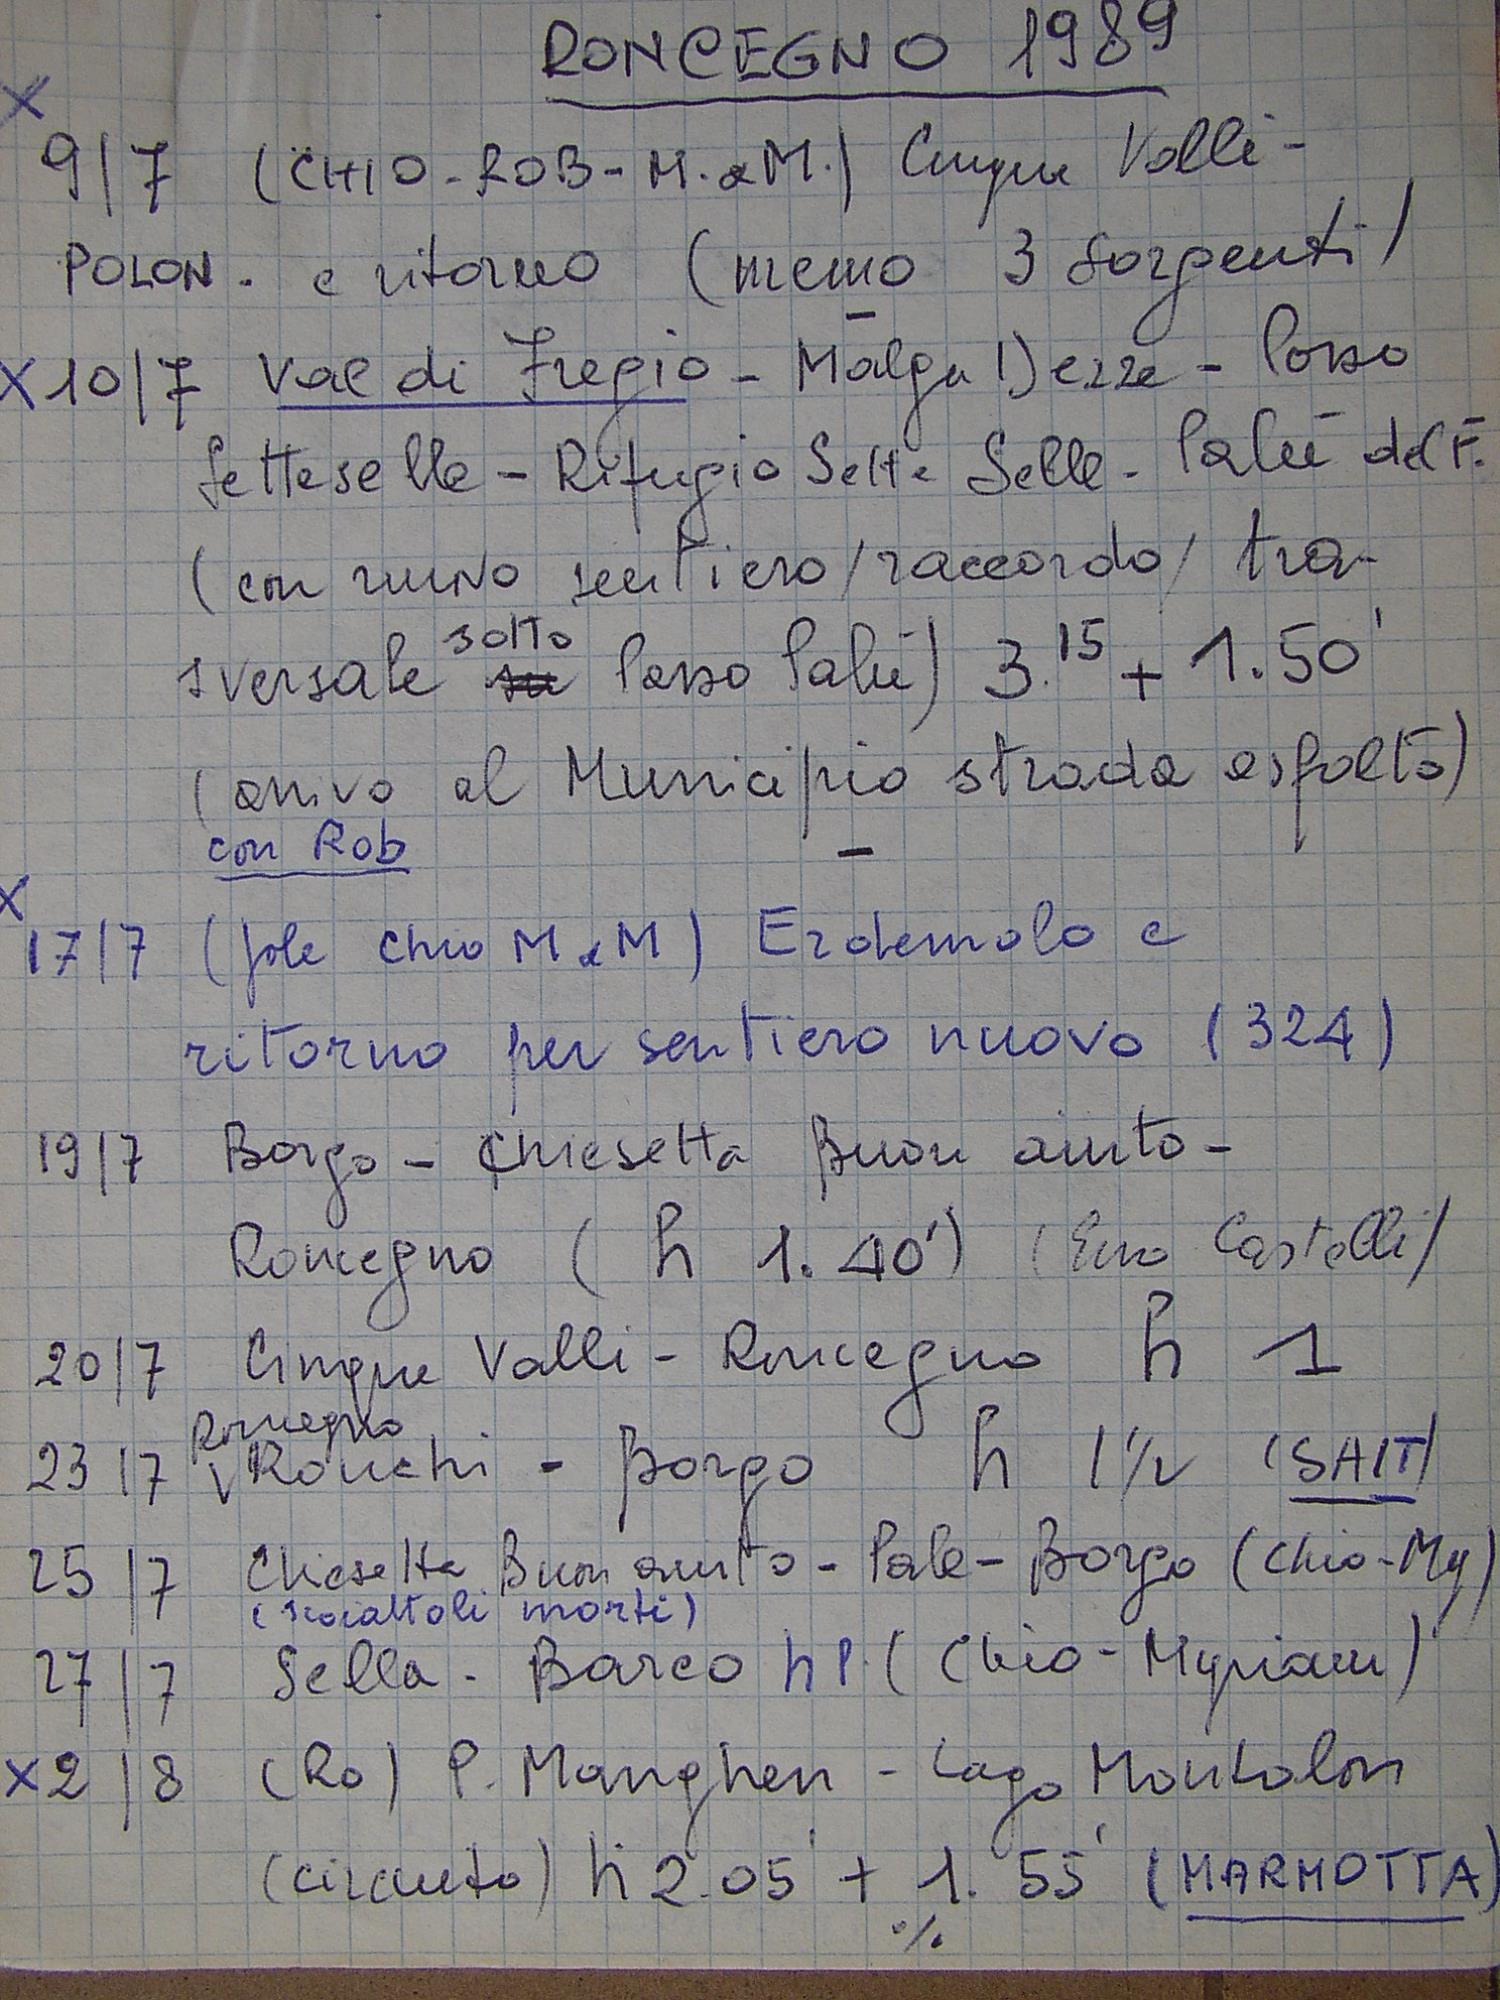 RONCEGNO 1989
X
9/7 (CHIO-ROB-M.eM.) Cinque Valli-
POLON. e ritorno (memo 3 sorgenti)
X 10/7 Val di Fregio - Malga Dezze - Passo
Setteselle - Rifugio Sette Selle - Palù del F.
(con nuovo sentiero/raccordo/tra-
sversale sotto su Passo Palù) 3.15 + 1.50'
(arrivo al Municipio strada asfalto)
con Rob
X
17/7 (sole Chio MeM) Erdemolo e
ritorno per sentiero nuovo (324)
19/7 Borgo - Chiesetta Buon aiuto -
Roncegno (h 1.40') (Eno Castelli)
20/7 Cinque Valli - Roncegno h 1
Roncegno
23/7 V Ronchi - Borgo h 1½ (SAIT)
25/7 Chiesetta Buon aiuto - Pale - Borgo (Chio-My)
(scoiattoli morti)
27/7 Sella - Barco h 1. (Chio-Myriam)
X 2/8 (Ro) P. Manghen - Lago Montalon
(circuito) h 2.05' + 1.55' (MARMOTTA)
./.